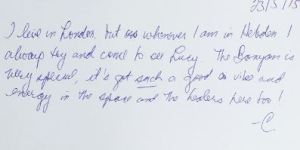 23/3/13
I live in London but ess whenever I am in Hebden I
always try and come to see Lucy. The Banyan is
very special, it's got such a good ch vibe and
energy in the space and the healers here too!
-C